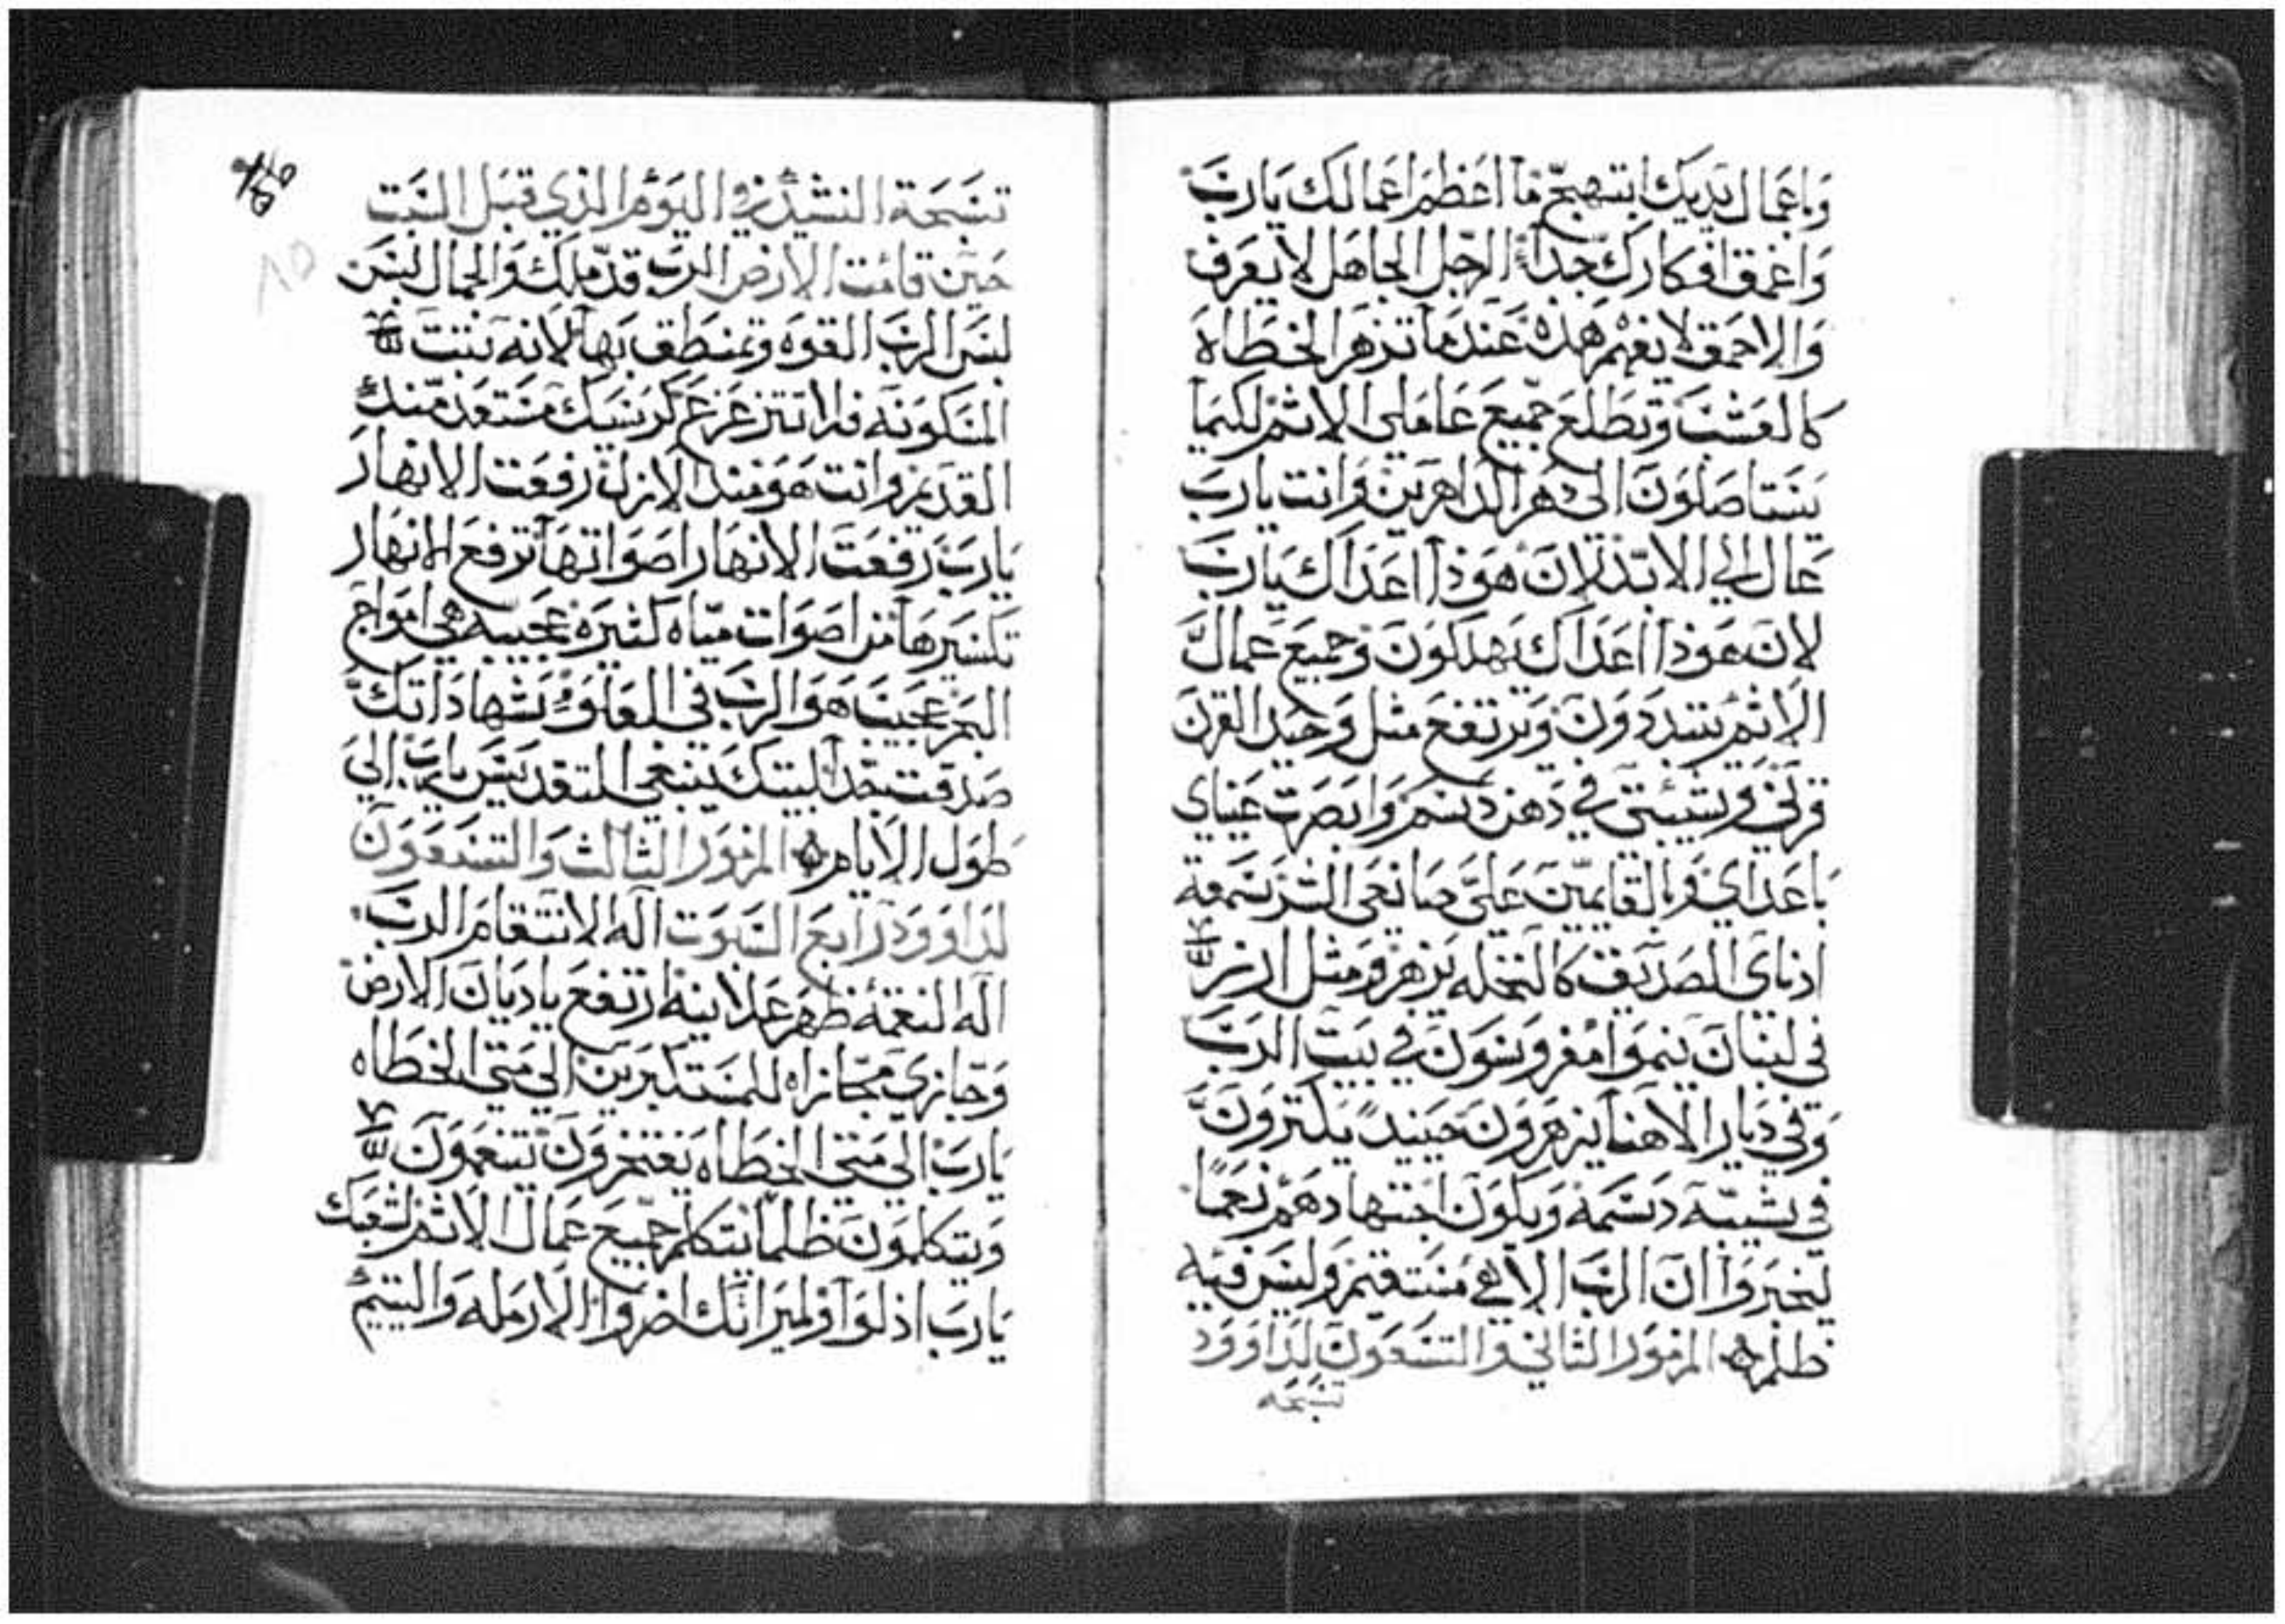 وباعمال يديك ابتهج ما اعظم اعمالك يارب
واعمق افكارك جدا الرجل الجاهل لا يعرف
والاحمق لا يفهم هذه عندما تزهر الخطاه
كالعشب وتطلع جميع عاملي الاثم لكيما
يستاصلون الى دهر الداهرين وانت يارب
عال الي الابد لان هوذا اعداك يارب
لان هوذا اعداك يهلكون وجميع عمال
الاثم يتبددون ويرتفع مثل وحيد القرن
قرني وشيبتي في دهن دسم وابصرت عيناي
باعداي وبالقايمين علي صانعي الشر تسمعه
اذناي الصديق كالنخله يزهر ومثل الارز
في لبنان ينموا مغروسون في بيت الرب
وفي ديار الاهنا يزهرون حينيد يكترون
في شيبه دسمه ويكون اجتهادهم نعما
ليخبروا ان الرب الاهي مستقيم وليس فيه
ظلم المزمور الثاني والتسعون لداوود
تسبحه
تسبحة النشيد في اليوم الذي قبل السبت
حين قامت الارض الرب قد ملك والجمال لبس
لبس الرب القوه وتمنطق بها لانه تبت
المسكونه فلا تتزعزع كرسيك مستعد منذ
القديم وانت هو منذ الازل رفعت الانهار
يارب رفعت الانهار اصواتها ترفع الانهار
تكسيرها من اصوات مياه كثيره عجيبه هي امواج
البحر عجيب هو الرب في العلو شهاداتك
صدقت جدا لبيتك ينبغي التقديس يارب الي
طول الايام المزمور الثالث والتسعون
لداوود رابع السبوت اله الانتقام الرب
اله النقمه ظهر علانيه ارتفع يا ديان الارض
وجازي مجازاه للمستكبرين الي متى الخطاه
يارب الي متى الخطاه يفتخرون يتنغمون
ويتكلمون ظلما يتكلم جميع عمال الاثم لشعبك
يارب اذلوا ولميراثك اضروا الارمله واليتيم